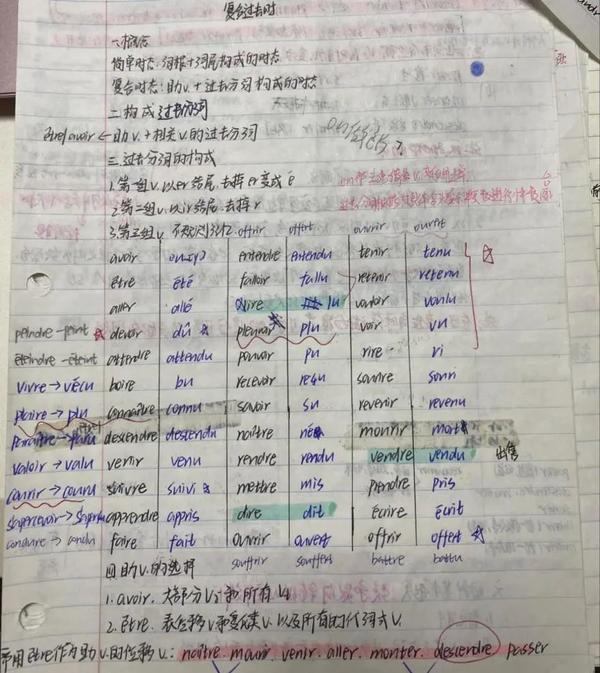 复合过去时
一.概念
简单时态:词根+词尾构成的时态
复合时态:助v.+过去分词构成的时态
二.构成 过去分词
être/avoir ← 助v.+相关v.的过去分词
三.过去分词的构成
1.第一组v.以er结尾,去掉er变成é
2.第二组v.以ir结尾,去掉r
3.第三组v.不规则 offrir offert ouvrir ouvert
avoir eu entendre entendu tenir tenu
être été falloir fallu retenir retenu
aller allé lire lu valoir valu
peindre - peint devoir dû pleuvoir plu voir vu
éteindre - éteint attendre attendu pouvoir pu rire ri
vivre → vécu boire bu recevoir reçu sourire souri
plaire → plu connaître connu savoir su revenir revenu
paraître → paru descendre descendu naître né mourir mort
valoir → valu venir venu rendre rendu vendre vendu 出售
courir → couru suivre suivi mettre mis prendre pris
apprendre appris dire dit écrire écrit
faire fait ouvrir ouvert offrir offert
souffrir souffert battre battu
四助v.的选择
1.avoir.大部分v.和所有
2.être.表位移v.以及所有的代词式v.
常用être作为助v.的位移v.: naître. mourir. venir. aller. monter. descendre. passer